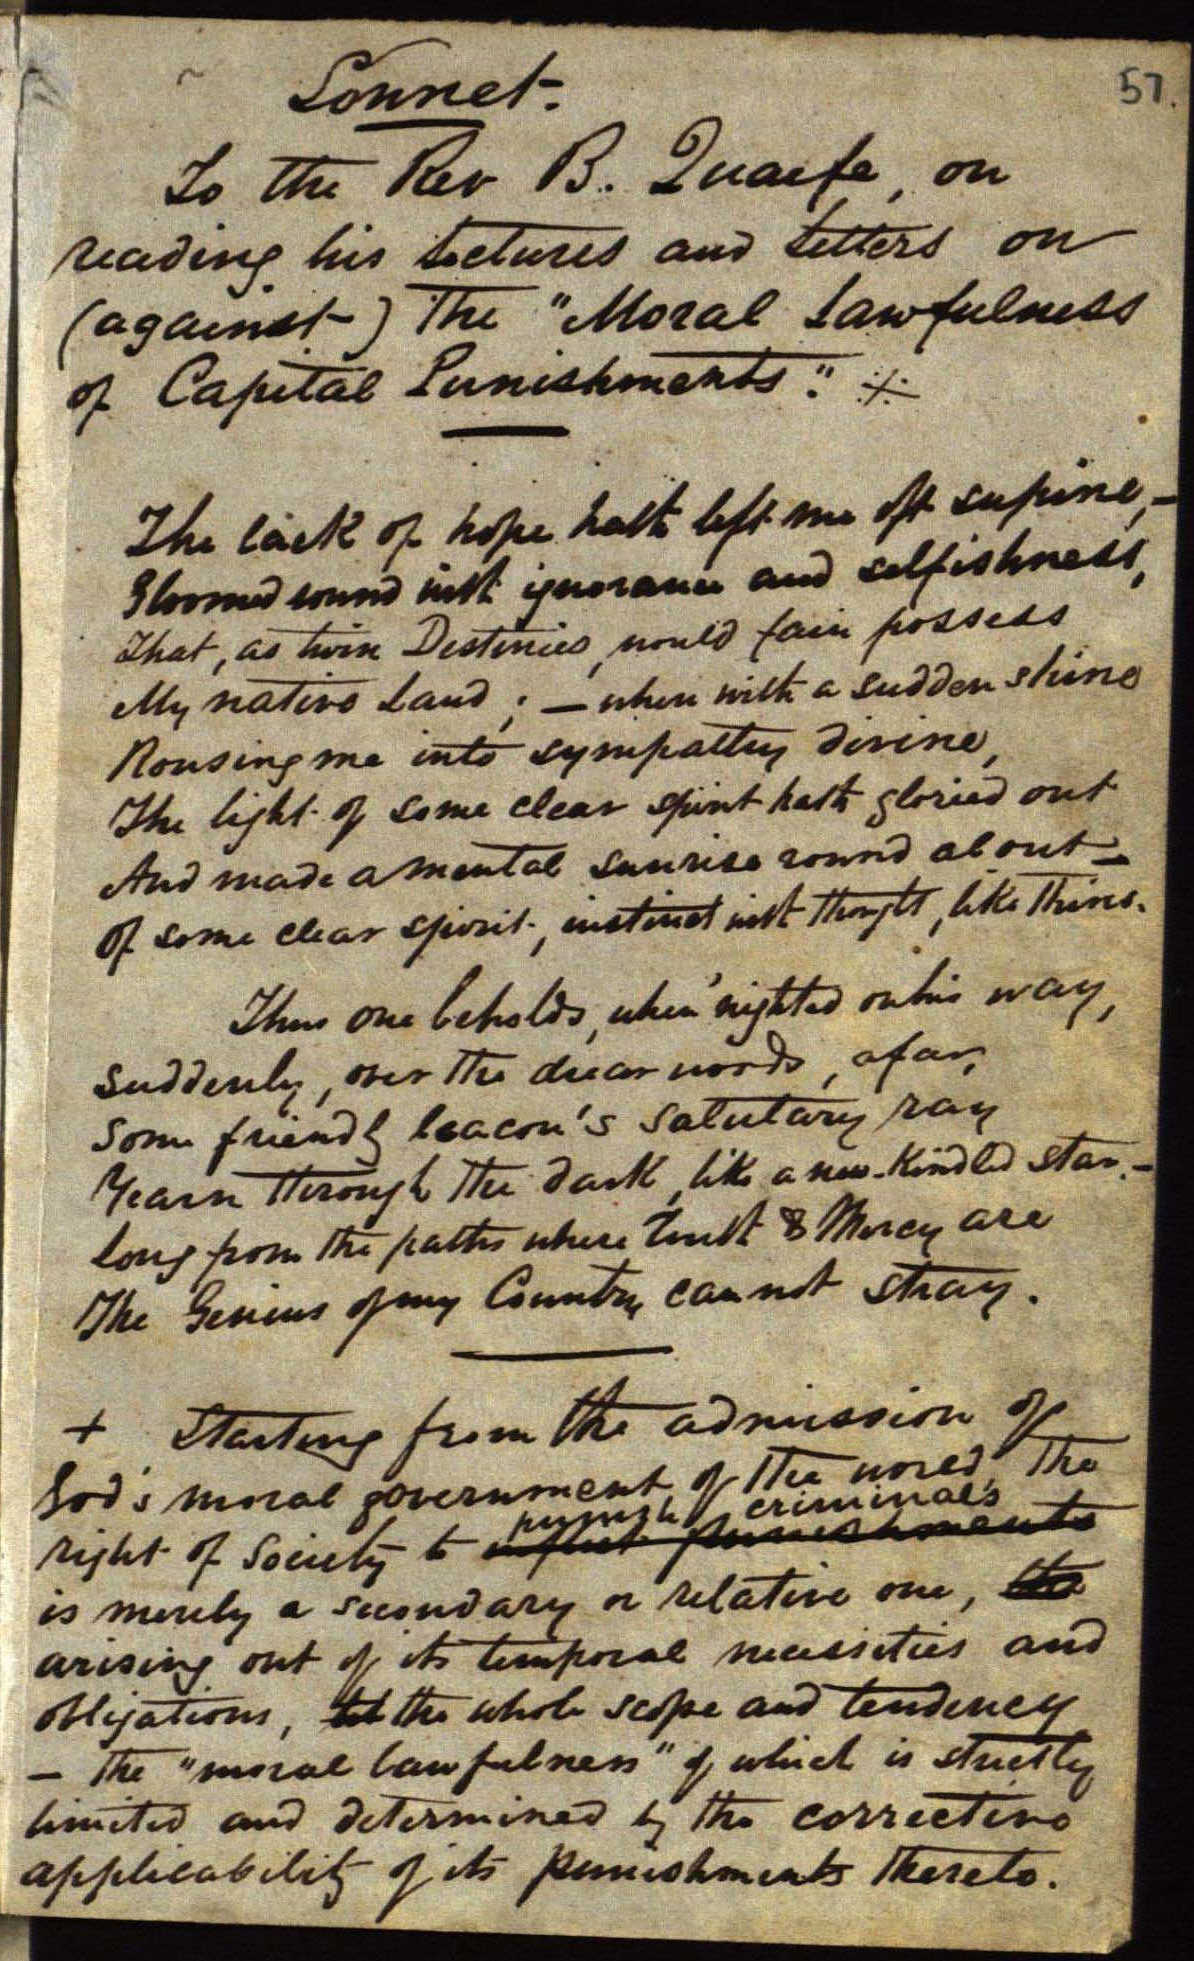 57.
Sonnet.
To the Rev B. Quaife, on
reading his Lectures and Letters on
(against) The "Moral Lawfulness
of Capital Punishments". ⁜
The lack of hope hath left me oft supine, —
Gloomed round with ignorance and selfishness,
That, as twin Destinies, would fain possess
My native Land; — when with a sudden shine
Rousing me into sympathy divine,
The light of some clear spirit hath gloried out
And made a mental sunrise round about —
Of some clear spirit, instinct with thought, like Thine.
Thus one beholds, when 'nighted on his way,
Suddenly, over the drear woods, afar,
Some friendly beacon's salutary ray
Yearn through the dark, like a new-kindled star. —
Long from the paths where Truth & Mercy are
The Genius of my Country cannot stray.
+ Starting from the admission of
God's moral government of the world, the
punish criminals
right of Society to inflict punishments
is merely a secondary or relative one, the
arising out of its temporal necessities and
obligations, the whole scope and tendency
— the "moral lawfulness" of which is strictly
limited and determined by the corrective
applicability of its punishments thereto.